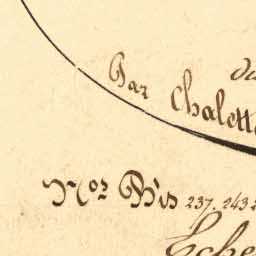 du
Par Chalette
Nos Bis 237. 243 2
Eche